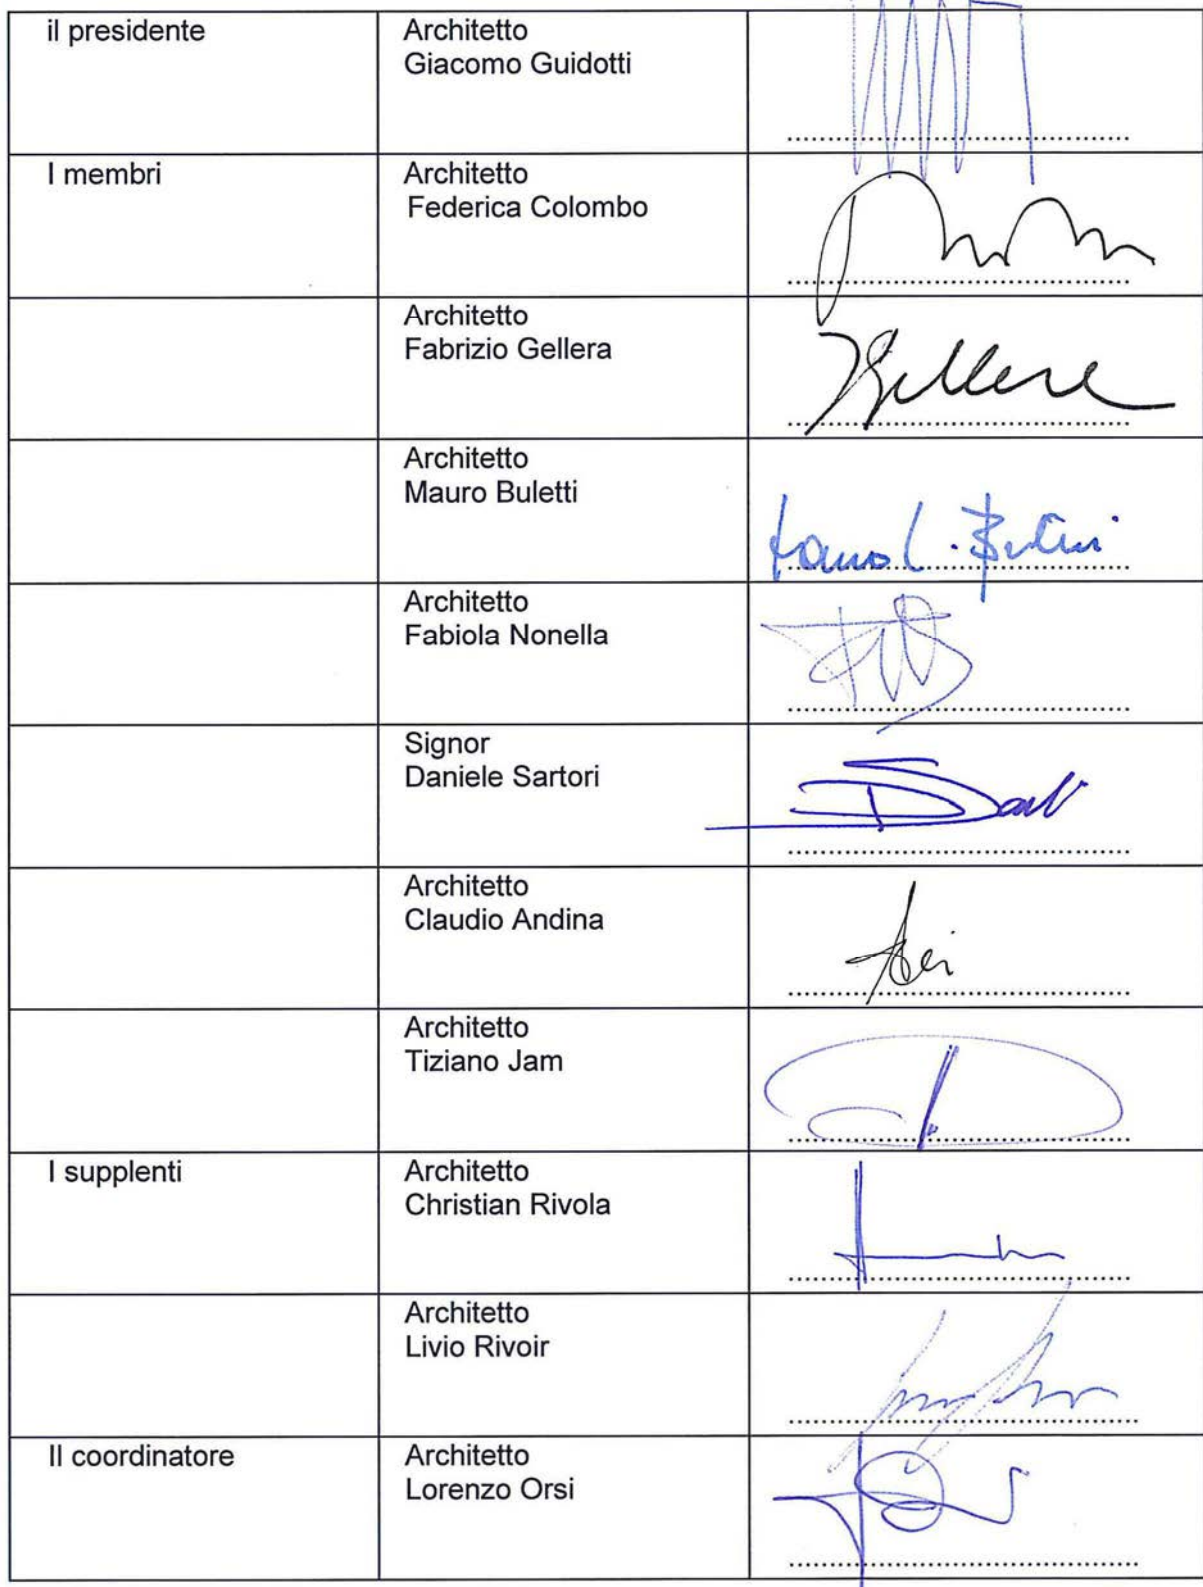 il presidente
Architetto
Giacomo Guidotti
I membri
Architetto
Federica Colombo
Architetto
Fabrizio Gellera
Gellera
Architetto
Mauro Buletti
Architetto
Fabiola Nonella
Signor
Daniele Sartori
Architetto
Claudio Andina
Architetto
Tiziano Jam
I supplenti
Architetto
Christian Rivola
Architetto
Livio Rivoir
Il coordinatore
Architetto
Lorenzo Orsi